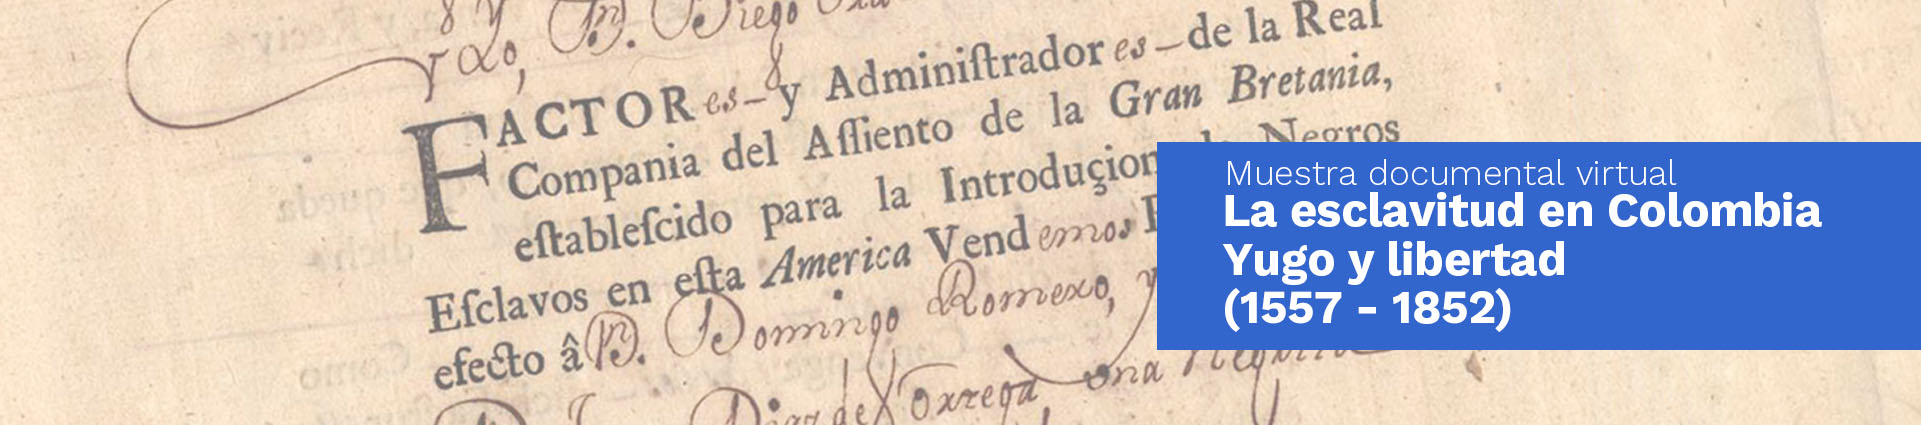 y Dn. Diego
FACTORes-y Adminiſtradores-de la Real
Compania del Aſſiento de la Gran Bretania,
eſtableſcido para la Introduçion Negros
Eſclavos en eſta America Vendemos
efecto â Dn. Domingo Romero, y
Diaz de una
Muestra documental virtual
La esclavitud en Colombia
Yugo y libertad
(1557 - 1852)